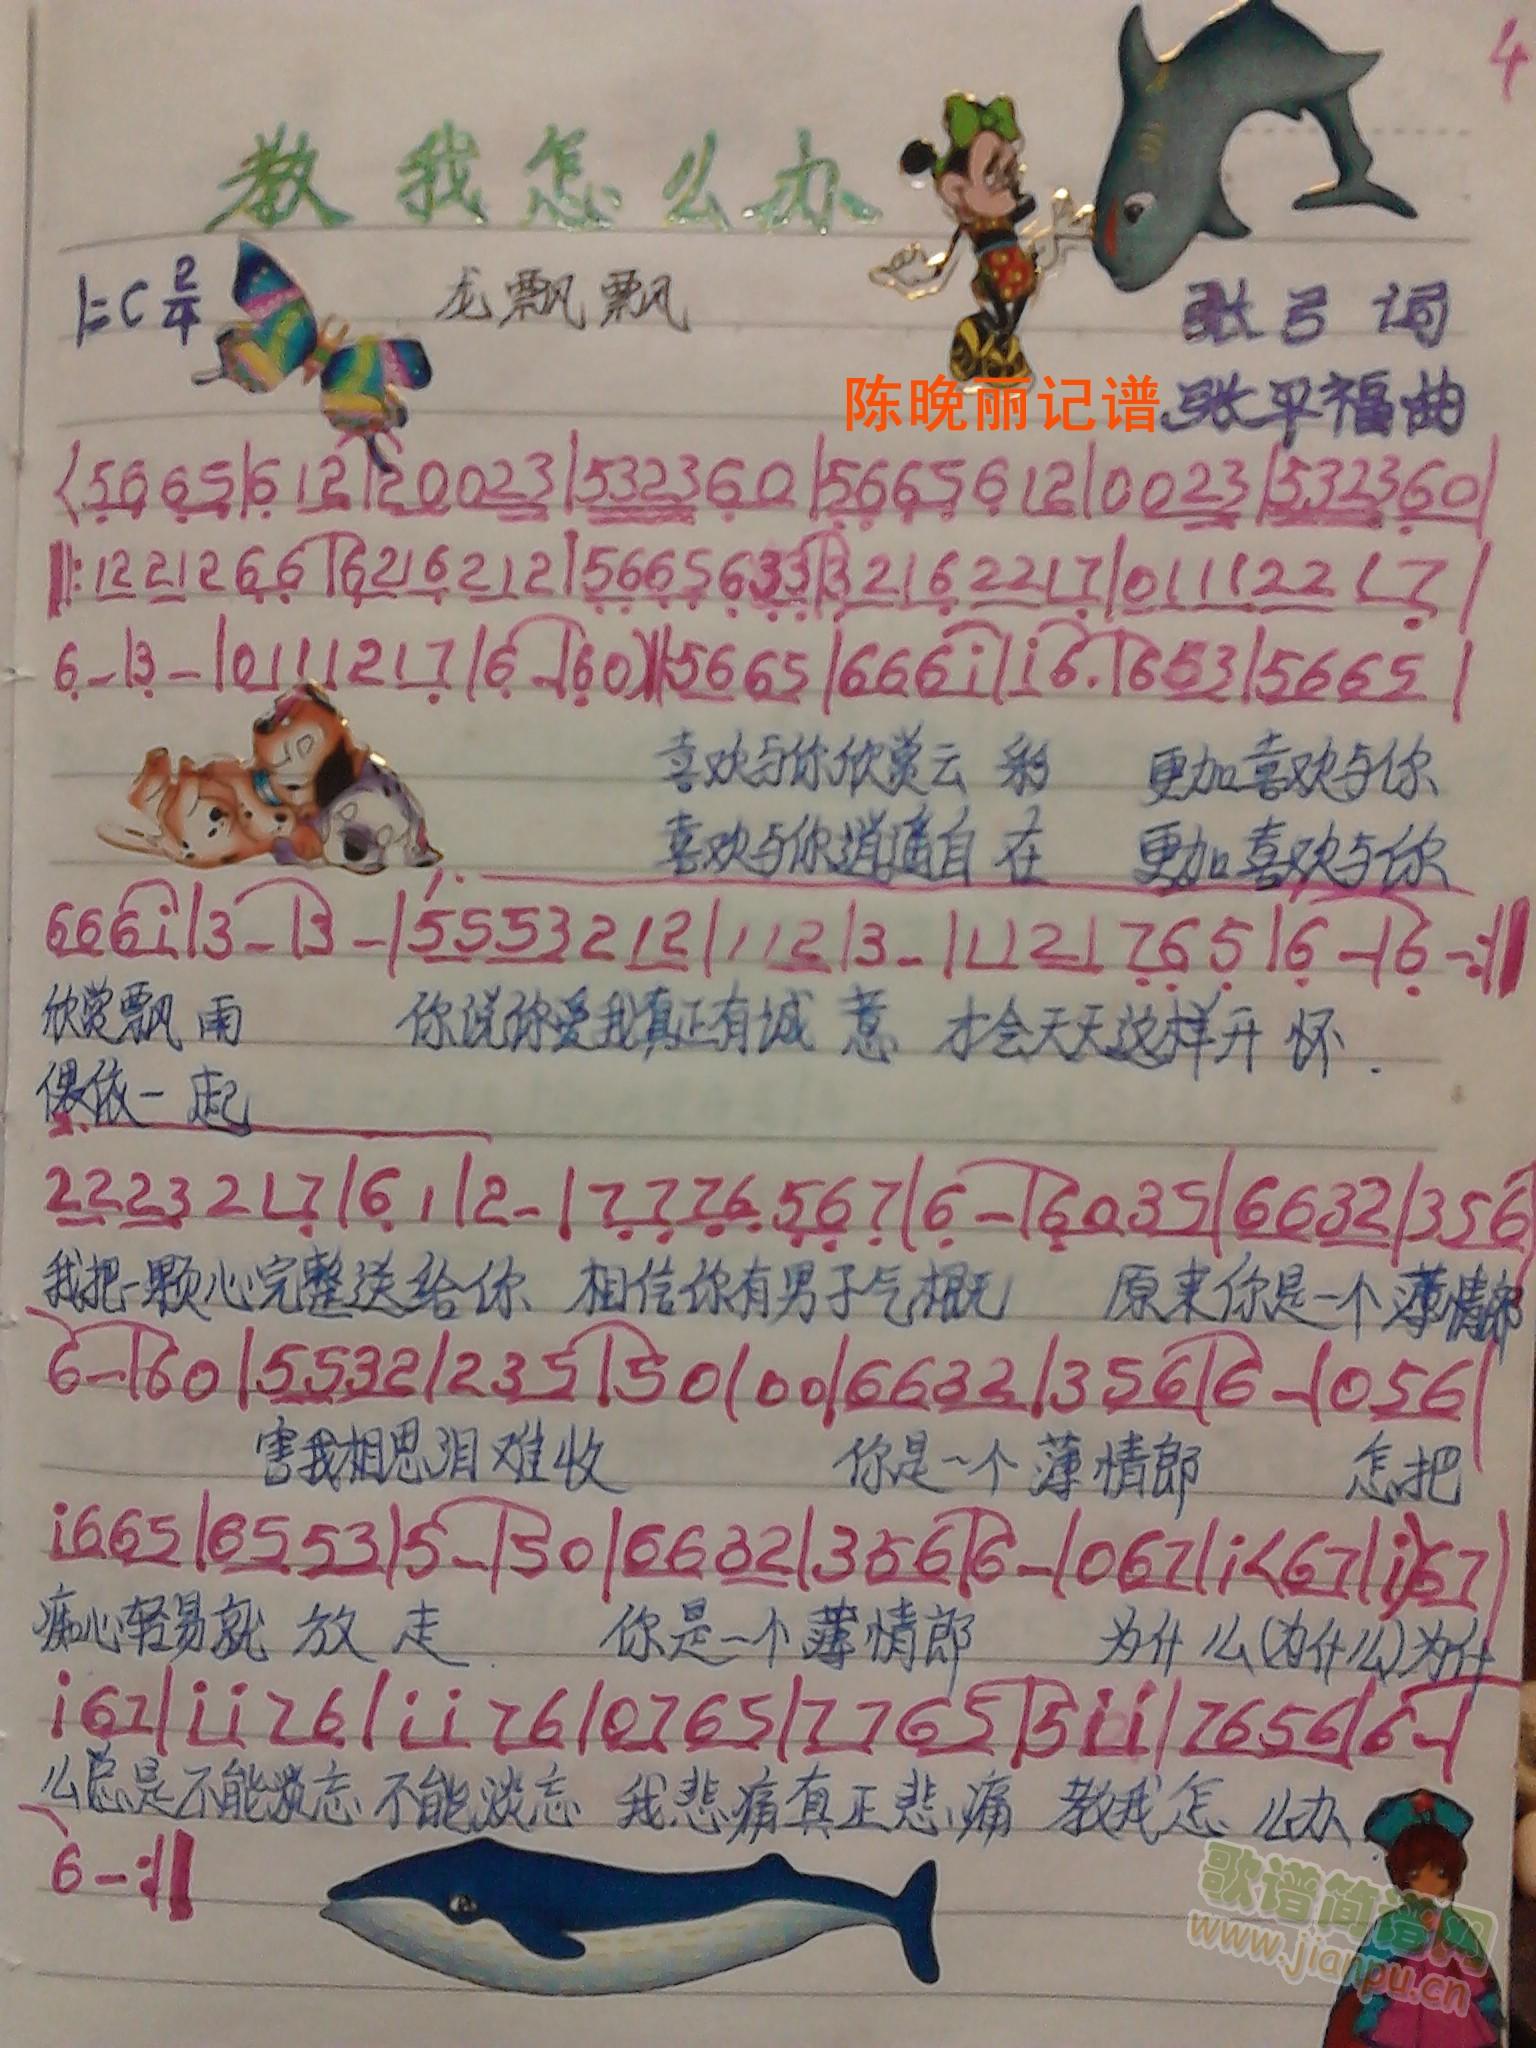 4
教我怎么办
1=C 2/4 龙飘飘 张弓 词
陈晚丽记谱 张平福曲
(5665|612|20023|532360|5665612|0023|532360|
‖:1221266|6216212|5665633|32162217|01112217|
6-|3-|0111217|6-|60)‖5665|666i|i6.|653|5665|
喜欢与你欣赏云彩 更加喜欢与你
喜欢与你逍遥自在 更加喜欢与你
666i|3-|3-|5553212|112|3-|1121765|6-|6-:‖
欣赏飘雨 你说你爱我真正有诚意 才会天天这样开怀.
偎依一起
2.
2223217|61|2-|7776567|6-|6035|6632|356
我把一颗心完整送给你 相信你有男子气概 原来你是一个薄情郎
6-|60|5532|235|50|00|6632|356|6-|056|
害我相思泪难收 你是一个薄情郎 怎把
i665|6553|5-|50|6632|356|6-|067|i<67|i)67|
痴心轻易就放走. 你是一个薄情郎 为什么(为什么)为什
i67|ii76|ii76|0765|7765|5ii|7656|6-|
么总是不能淡忘不能淡忘 我悲痛真正悲痛 教我怎么办.
6-:‖
歌谱简谱网
www.jianpu.cn